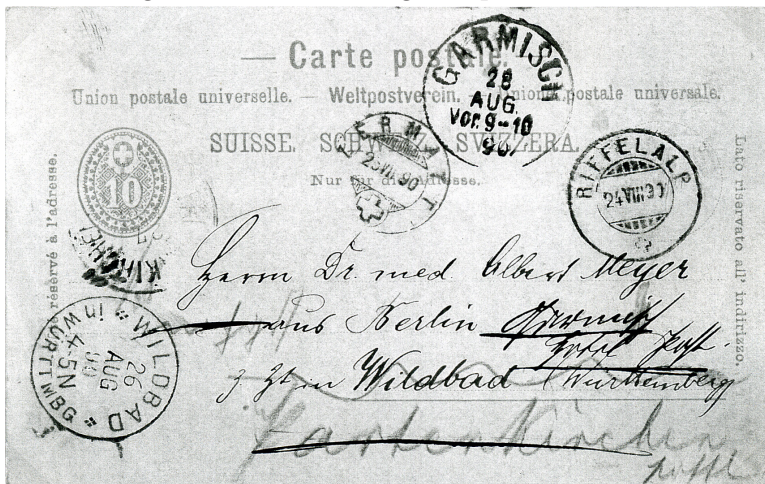 — Carte postale. —
Union postale universelle. — Weltpostverein. — Unione postale universale.
SUISSE. SCHWEIZ. SVIZZERA.
Nur für die Adresse.
réservé à l'adresse.
Lato riservato all' indirizzo.
10
GARMISCH
28
AUG.
Vor. 9-10
90
ZERMATT
25 VIII 90
RIFFELALP
24 VIII 90
WILDBAD
26
AUG
90
4-5N
in WÜRTTMBG
Herrn Dr. med. Albert Meyer
aus Berlin Garmisch
Hotel Post.
z Zt in Wildbad Württemberg
Partenkirchen